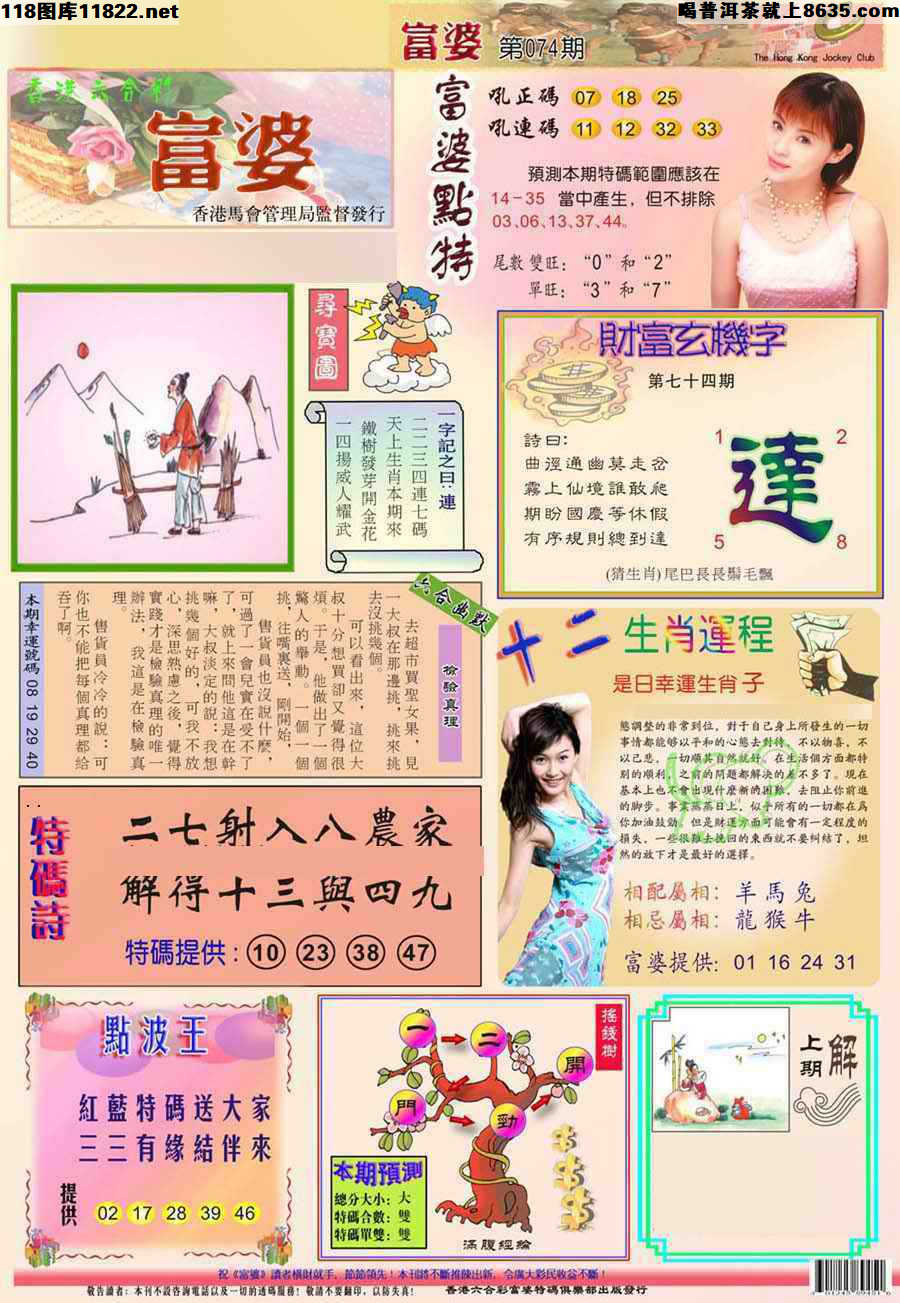 118图库11822.net
喝普洱茶就上8635.com
富婆 第074期
The Hong Kong Jockey Club
香港六合彩
富婆
香港馬會管理局監督發行
富婆點特
吼正碼 07 18 25
吼連碼 11 12 32 33
預測本期特碼範圍應該在
14-35 當中產生，但不排除
03.06.13.37.44。
尾數雙旺：“0”和“2”
單旺：“3”和“7”
尋寶圖
一字記之曰：連
一二二三四連七碼
天上生肖本期來
鐵樹發芽開金花
一四揚威人耀武
財富玄機字
第七十四期
詩曰：
曲徑通幽莫走岔
霧上仙境誰敢爬
期盼國慶等休假
有序規則總到達
1 2
達
5 8
(猜生肖)尾巴長長鬃毛飄
六合幽默
檢驗真理
去超市買聖女果，見
一大叔在那邊挑，挑來挑
去沒挑幾個。
可以看出來，這位大
叔十分想買卻又覺得很
煩。于是，他做出了一個
驚人的舉動。一個一個
挑，往嘴裏送，剛開始，
售貨員也沒說什麼，
可過了一會兒實在受不了
了，就上來問他這是在幹
嘛，大叔淡定的說：我想
挑幾個好的，可我不放
心，深思熟慮之後，覺得
實踐才是檢驗真理的唯一
辦法，我這是在檢驗真
理。
售貨員冷冷的說：可
你也不能把每個真理都給
吞了啊。
本期幸運號碼 08 19 29 40
十二生肖運程
是日幸運生肖子
態調整的非常到位，對于自己身上所發生的一切
事情都能够以平和的心態去對待，不以物喜，不
以己悲，一切順其自然就好，在生活個方面都特
別的順利，之前的問題都解決的差不多了。現在
基本上也不會出現什麽新的困難，去阻止你前進
的脚步。事業蒸蒸日上，似乎所有的一切都在爲
你加油鼓勁，但是財運方面可能會有一定程度的
損失，一些很難去挽回的東西就不要糾結了，坦
然的放下才是最好的選擇。
相配屬相：羊馬兔
相忌屬相：龍猴牛
富婆提供：01 16 24 31
特碼詩
二七射入八農家
解得十三與四九
特碼提供：10 23 38 47
點波王
紅藍特碼送大家
三三有緣結伴來
提供 02 17 28 39 46
搖錢樹
一 二 開
門 勁
本期預測
總分大小：大
特碼合數：雙
特碼單雙：雙
滿腹經綸
上期解
祝《富婆》讀者橫財就手，節節領先！本刊將不斷推陳出新，令廣大彩民收益不斷！
敬告讀者：本刊不設咨詢電話以及一切的透碼服務！敬請不要翻印，以防失真！
香港六合彩富婆特碼俱樂部出版發行